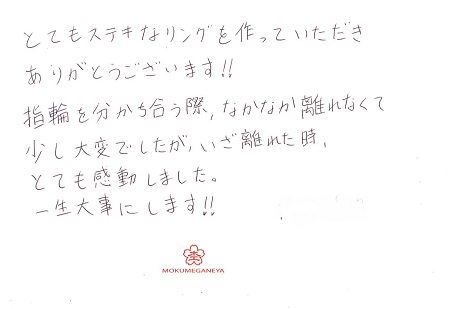 とてもステキなリングを作っていただき
ありがとうございます!!
指輪を分かち合う際,なかなか離れなくて
少し大変でしたが,いざ離れた時,
とても感動しました。
一生大事にします!!
MOKUMEGANEYA